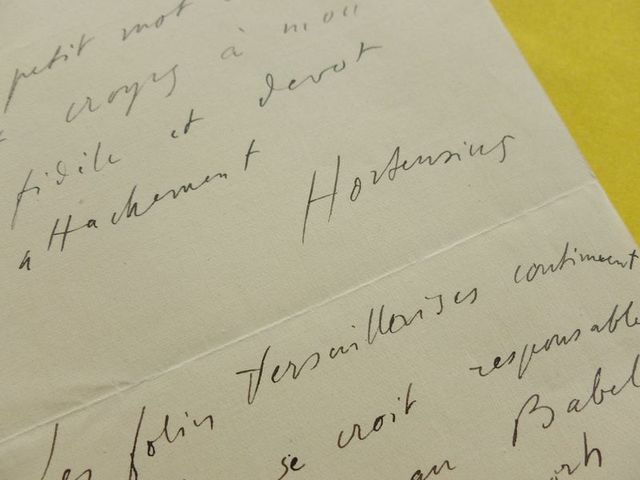 petit mot
croyez à mon
fidèle et devot
attachement
Hortensius
Les folies Versaillaises continuent
se croit responsable
au Babel